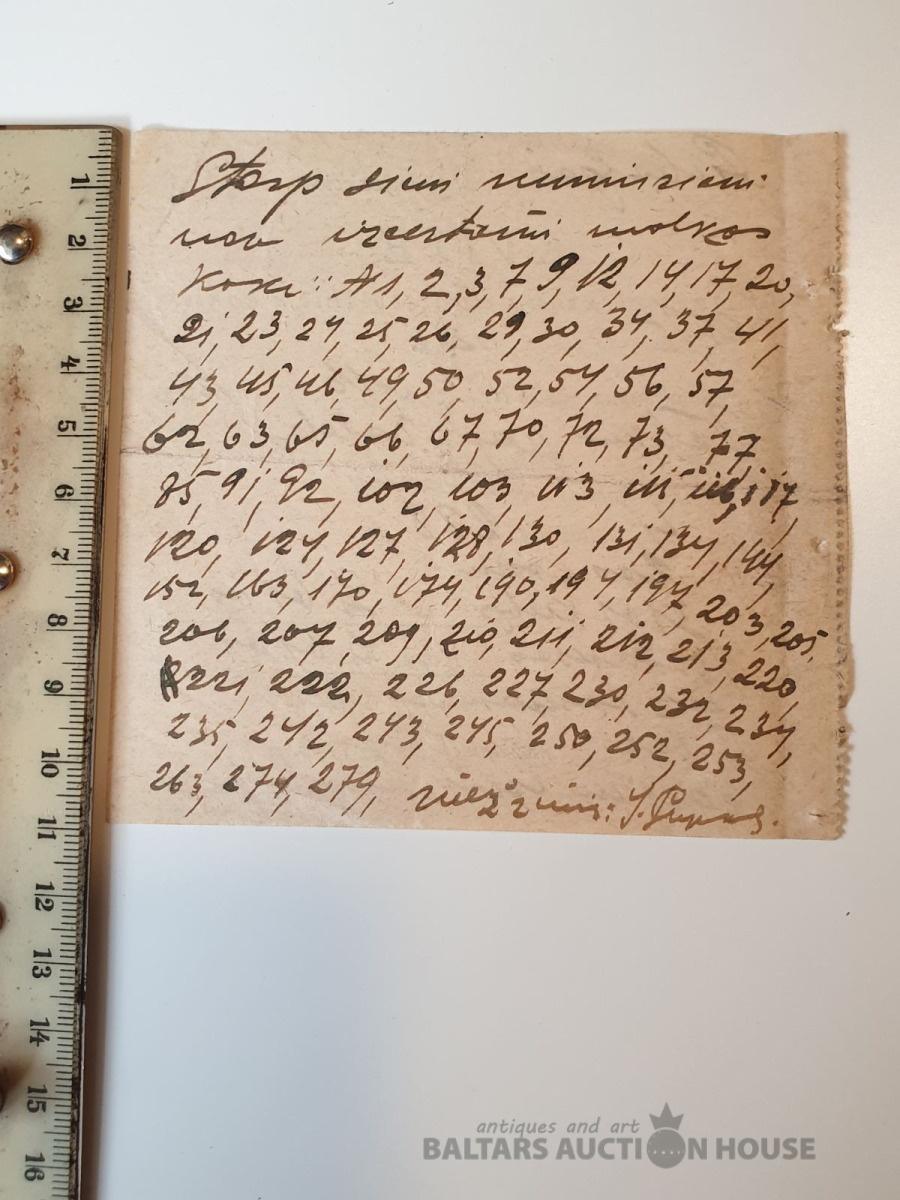 Starp šiem numuriem
nav izcirtami malkas
koki: A1, 2, 3, 7, 9, 12, 14, 17, 20,
21, 23, 24, 25, 26, 29, 30, 34, 37, 41,
43, 45, 46, 49, 50, 52, 54, 56, 57,
62, 63, 65, 66, 67, 70, 72, 73, 77,
85, 91, 92, 102, 103, 113, 115, 116, 117,
120, 124, 127, 128, 130, 131, 134, 144,
152, 163, 170, 174, 190, 194, 197, 203, 205,
206, 207, 209, 210, 211, 212, 213, 220,
221, 222, 226, 227, 230, 232, 234,
235, 242, 243, 245, 250, 252, 253,
263, 274, 279,
1
2
3
4
5
6
7
8
9
10
11
12
13
14
15
16
antiques and art
BALTARS AUCTION HOUSE